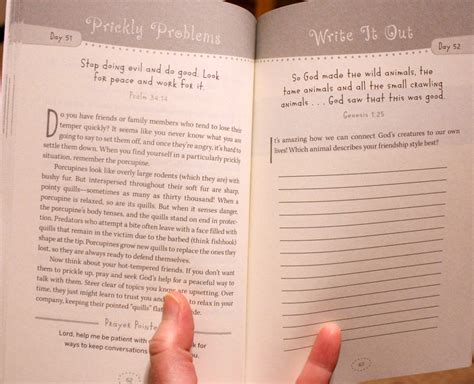 Day 51
Prickly Problems
Stop doing evil and do good. Look
for peace and work for it.
Psalm 34:14
Do you have friends or family members who tend to lose their
temper quickly? It seems like you never know what you are
going to say to set them off, and once they're angry, it's hard to
settle them down. When you find yourself in a particularly prickly
situation, remember the porcupine.
Porcupines look like overly large rodents (which they are) with
bushy fur. But interspersed throughout their soft fur are sharp,
pointy quills—sometimes as many as thirty thousand! When a
porcupine is relaxed, so are its quills. But when it senses danger,
the porcupine's body tenses, and the quills stand on end in protec-
tion. Predators who attempt a bite often leave with a face filled with
quills that remain in the victim due to the barbed (think fishhook)
shape at the tip. Porcupines grow new quills to replace the ones they
lose, so they are always ready to defend themselves.
Now think about your hot-tempered friends. If you don't want
them to prickle up, pray and seek God's help for a peaceful way to
deal with them. Steer clear of topics you know are upsetting. Over
time, they just might learn to trust you and to relax in your
company, keeping their pointed "quills" flat
Prayer Pointe
Lord, help me be patient with
ways to keep conversations
62
Write It Out
Day 52
So God made the wild animals, the
tame animals and all the small crawling
animals . . . God saw that this was good.
Genesis 1:25
It's amazing how we can connect God's creatures to our own
lives! Which animal describes your friendship style best?
63